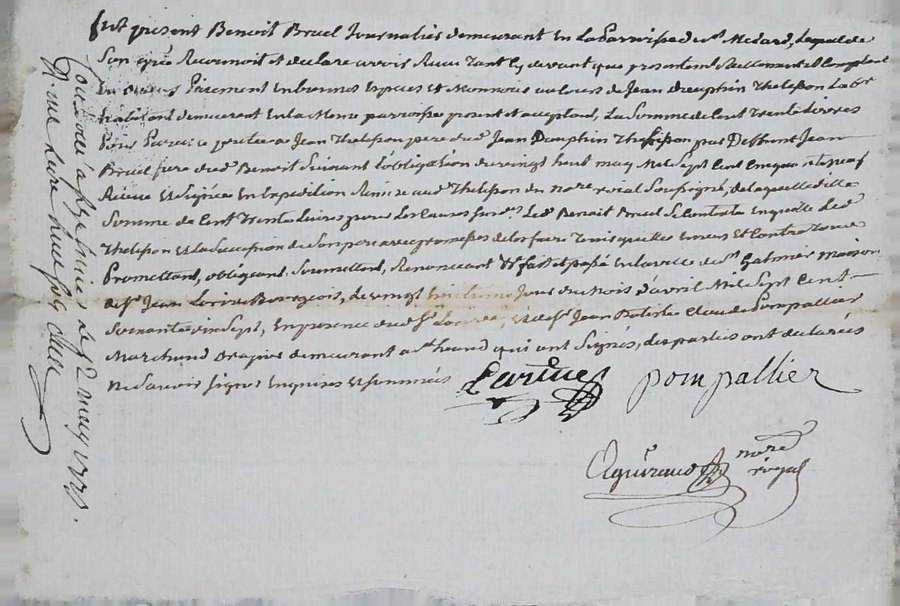 fut present Benoit Bruel Journalier demeurant En la Parroisse de St Medard, Lequel de
Son gré a Reconnoit et declare avoir Receu tant Cy devant que presentement Reellement et Comptant
En Bonnes Especes et Monnoies de Jean Dauphin Thelisson Labr
habitant demeurant En la Meme parroisse present et acceptant, La Somme de Cent Trente Livres
a Jean Thelisson pere dud Jean Dauphin Thelisson par Deffunt Jean
Bruel frere dud Benoit Suivant L'obligation du vingt huit may Mil Sept Cent Cinquante neuf
Receue Et Signée En Expedition Remise aud Thelisson du Nore royal Soussigné, de laquelle ditte
Somme de Cent Trente Livres pour Les Causes susd. Led. Benoit Bruel Se Contente En quitte led
Thelisson et La Succession de Son pere avec promesses de les faire Tenir quittes Envers Et Contre Tous
Promettant, obligeant, Soumettant, Renonceant &c fait et passé En la ville de St Galmier maison
de Sr Jean Bourgeois, Le vingt Jour du Mois d'avril Mil Sept Cent
Soixante dix Sept, En presence dud Sr et de Sr Jean Batiste Claude Pompallier
Marchand demeurant a St qui ont Signés, Les parties ont declarées
Ne Savoir Signer Enquises et Sommées
pompallier
nore
royal
a St may 1777.